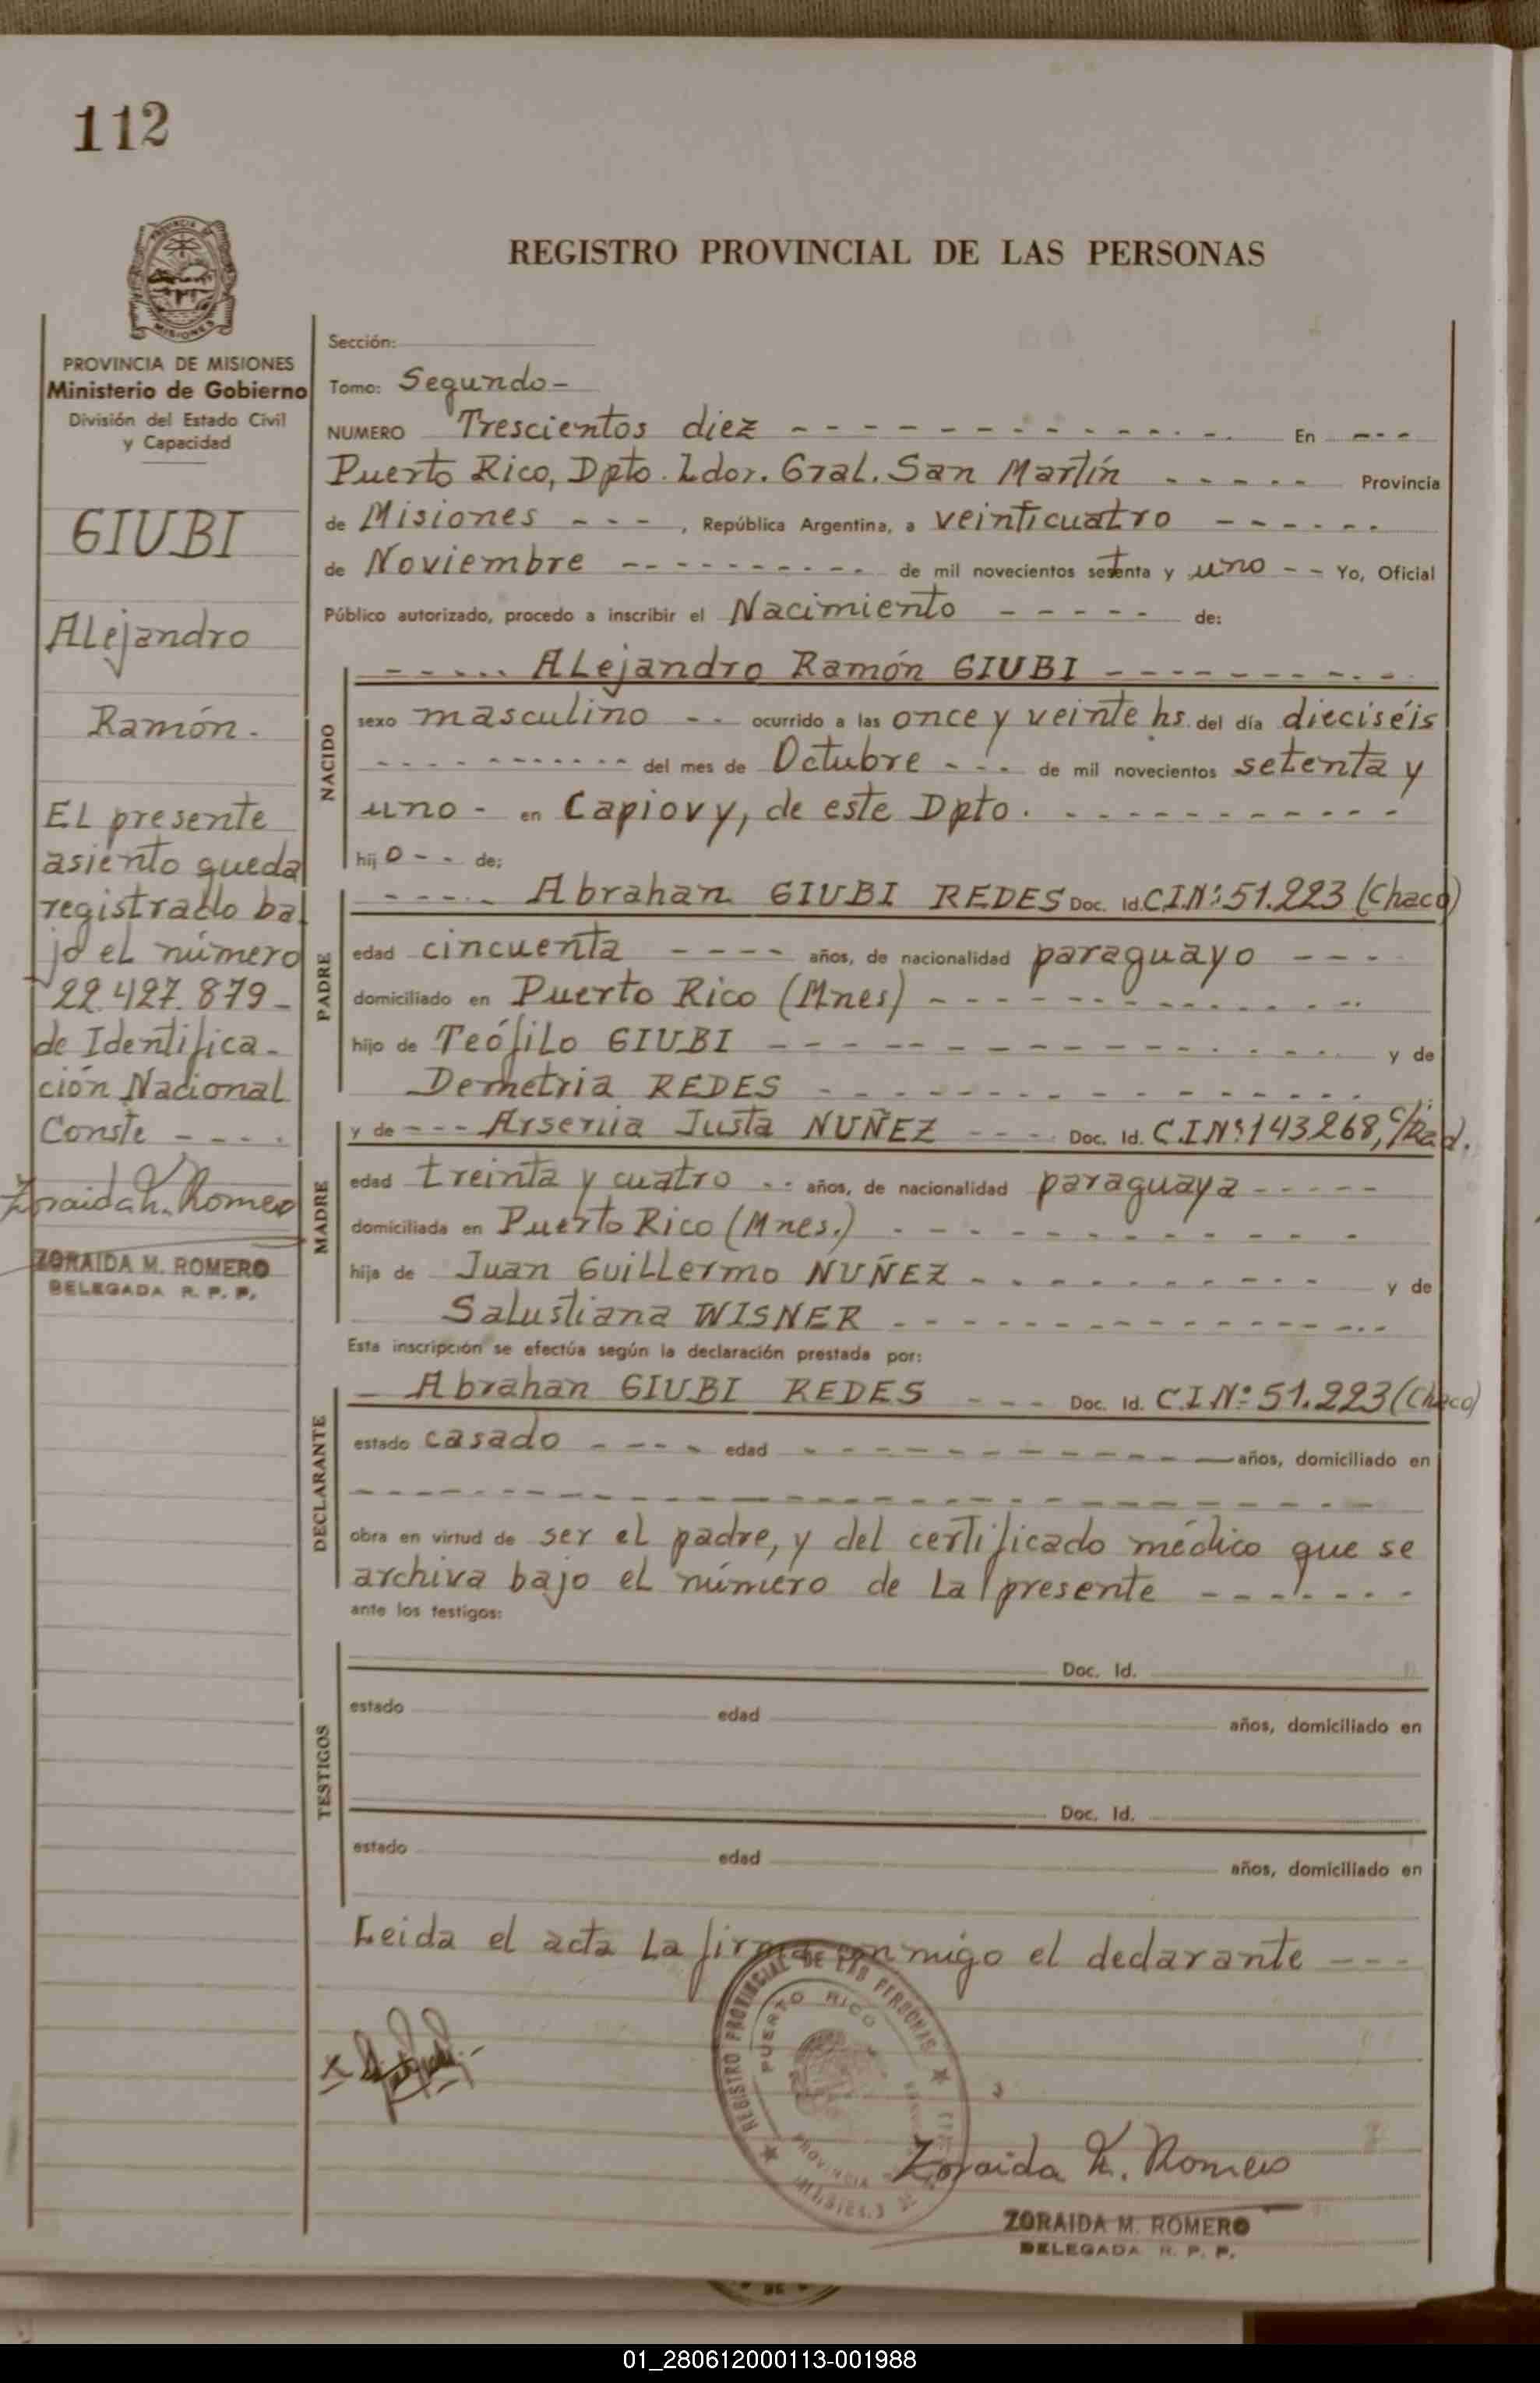 112
REGISTRO PROVINCIAL DE LAS PERSONAS
PROVINCIA DE MISIONES
Ministerio de Gobierno
División del Estado Civil
y Capacidad
GIUBI
Alejandro
Ramón.
El presente
asiento queda
registrado ba
jo el número
22.427.879-
de Identifica-
ción Nacional
Conste - - - -
Zoraida M. Romero
ZORAIDA M. ROMERO
DELEGADA R. P. P.
Sección:
Tomo: Segundo-
NUMERO Trescientos diez - - - - - - - - - - - - - - En - - -
Puerto Rico, Dpto. Ldor. Gral. San Martín - - - - - Provincia
de Misiones - - - , República Argentina, a veinticuatro - - - - - -
de Noviembre - - - - - - - - - - de mil novecientos setenta y uno - - Yo, Oficial
Público autorizado, procedo a inscribir el Nacimiento - - - - - de:
- - - - - Alejandro Ramón GIUBI - - - - - - - - - -
NACIDO
sexo masculino - - ocurrido a las once y veinte hs. del día dieciséis
- - - - - - - - - - - - del mes de Octubre - - - de mil novecientos setenta y
uno - en Capiovy, de este Dpto. - - - - - - - - - - - -
hijo - - de:
PADRE
- - - - - Abrahan GIUBI REDES Doc. Id. C.I.Nº 51.223 (Chaco)
edad cincuenta - - - - años, de nacionalidad paraguayo - - - -
domiciliado en Puerto Rico (Mnes) - - - - - - - - - - - - -
hijo de Teófilo GIUBI - - - - - - - - - - - - - - - y de
Demetria REDES - - - - - - - - - - - - - -
MADRE
y de - - - Arsenia Justa NUÑEZ - - - - Doc. Id. C.I Nº 143268, c/Rad.
edad treinta y cuatro - - años, de nacionalidad paraguaya - - - - -
domiciliada en Puerto Rico (Mnes.) - - - - - - - - - - -
hija de Juan Guillermo NUÑEZ - - - - - - - - - - y de
Salustiana WISNER - - - - - - - - - - - - - - - -
Esta inscripción se efectúa según la declaración prestada por:
DECLARANTE
- Abrahan GIUBI REDES - - - Doc. Id. C.I Nº 51.223 (Chaco)
estado casado - - - - edad - - - - - - - - - - - - años, domiciliado en
- - - - - - - - - - - - - - - - - - - - - - - - - -
obra en virtud de ser el padre, y del certificado médico que se
archiva bajo el número de la presente - - - - - - -
ante los testigos:
TESTIGOS
Doc. Id.
estado edad años, domiciliado en
Doc. Id.
estado edad años, domiciliado en
Leida el acta la firma conmigo el declarante - - -
REGISTRO PROVINCIAL DE LAS PERSONAS
PUERTO RICO
PROVINCIA
Zoraida M. Romero
ZORAIDA M. ROMERO
DELEGADA R. P. P.
01_280612000113-001988